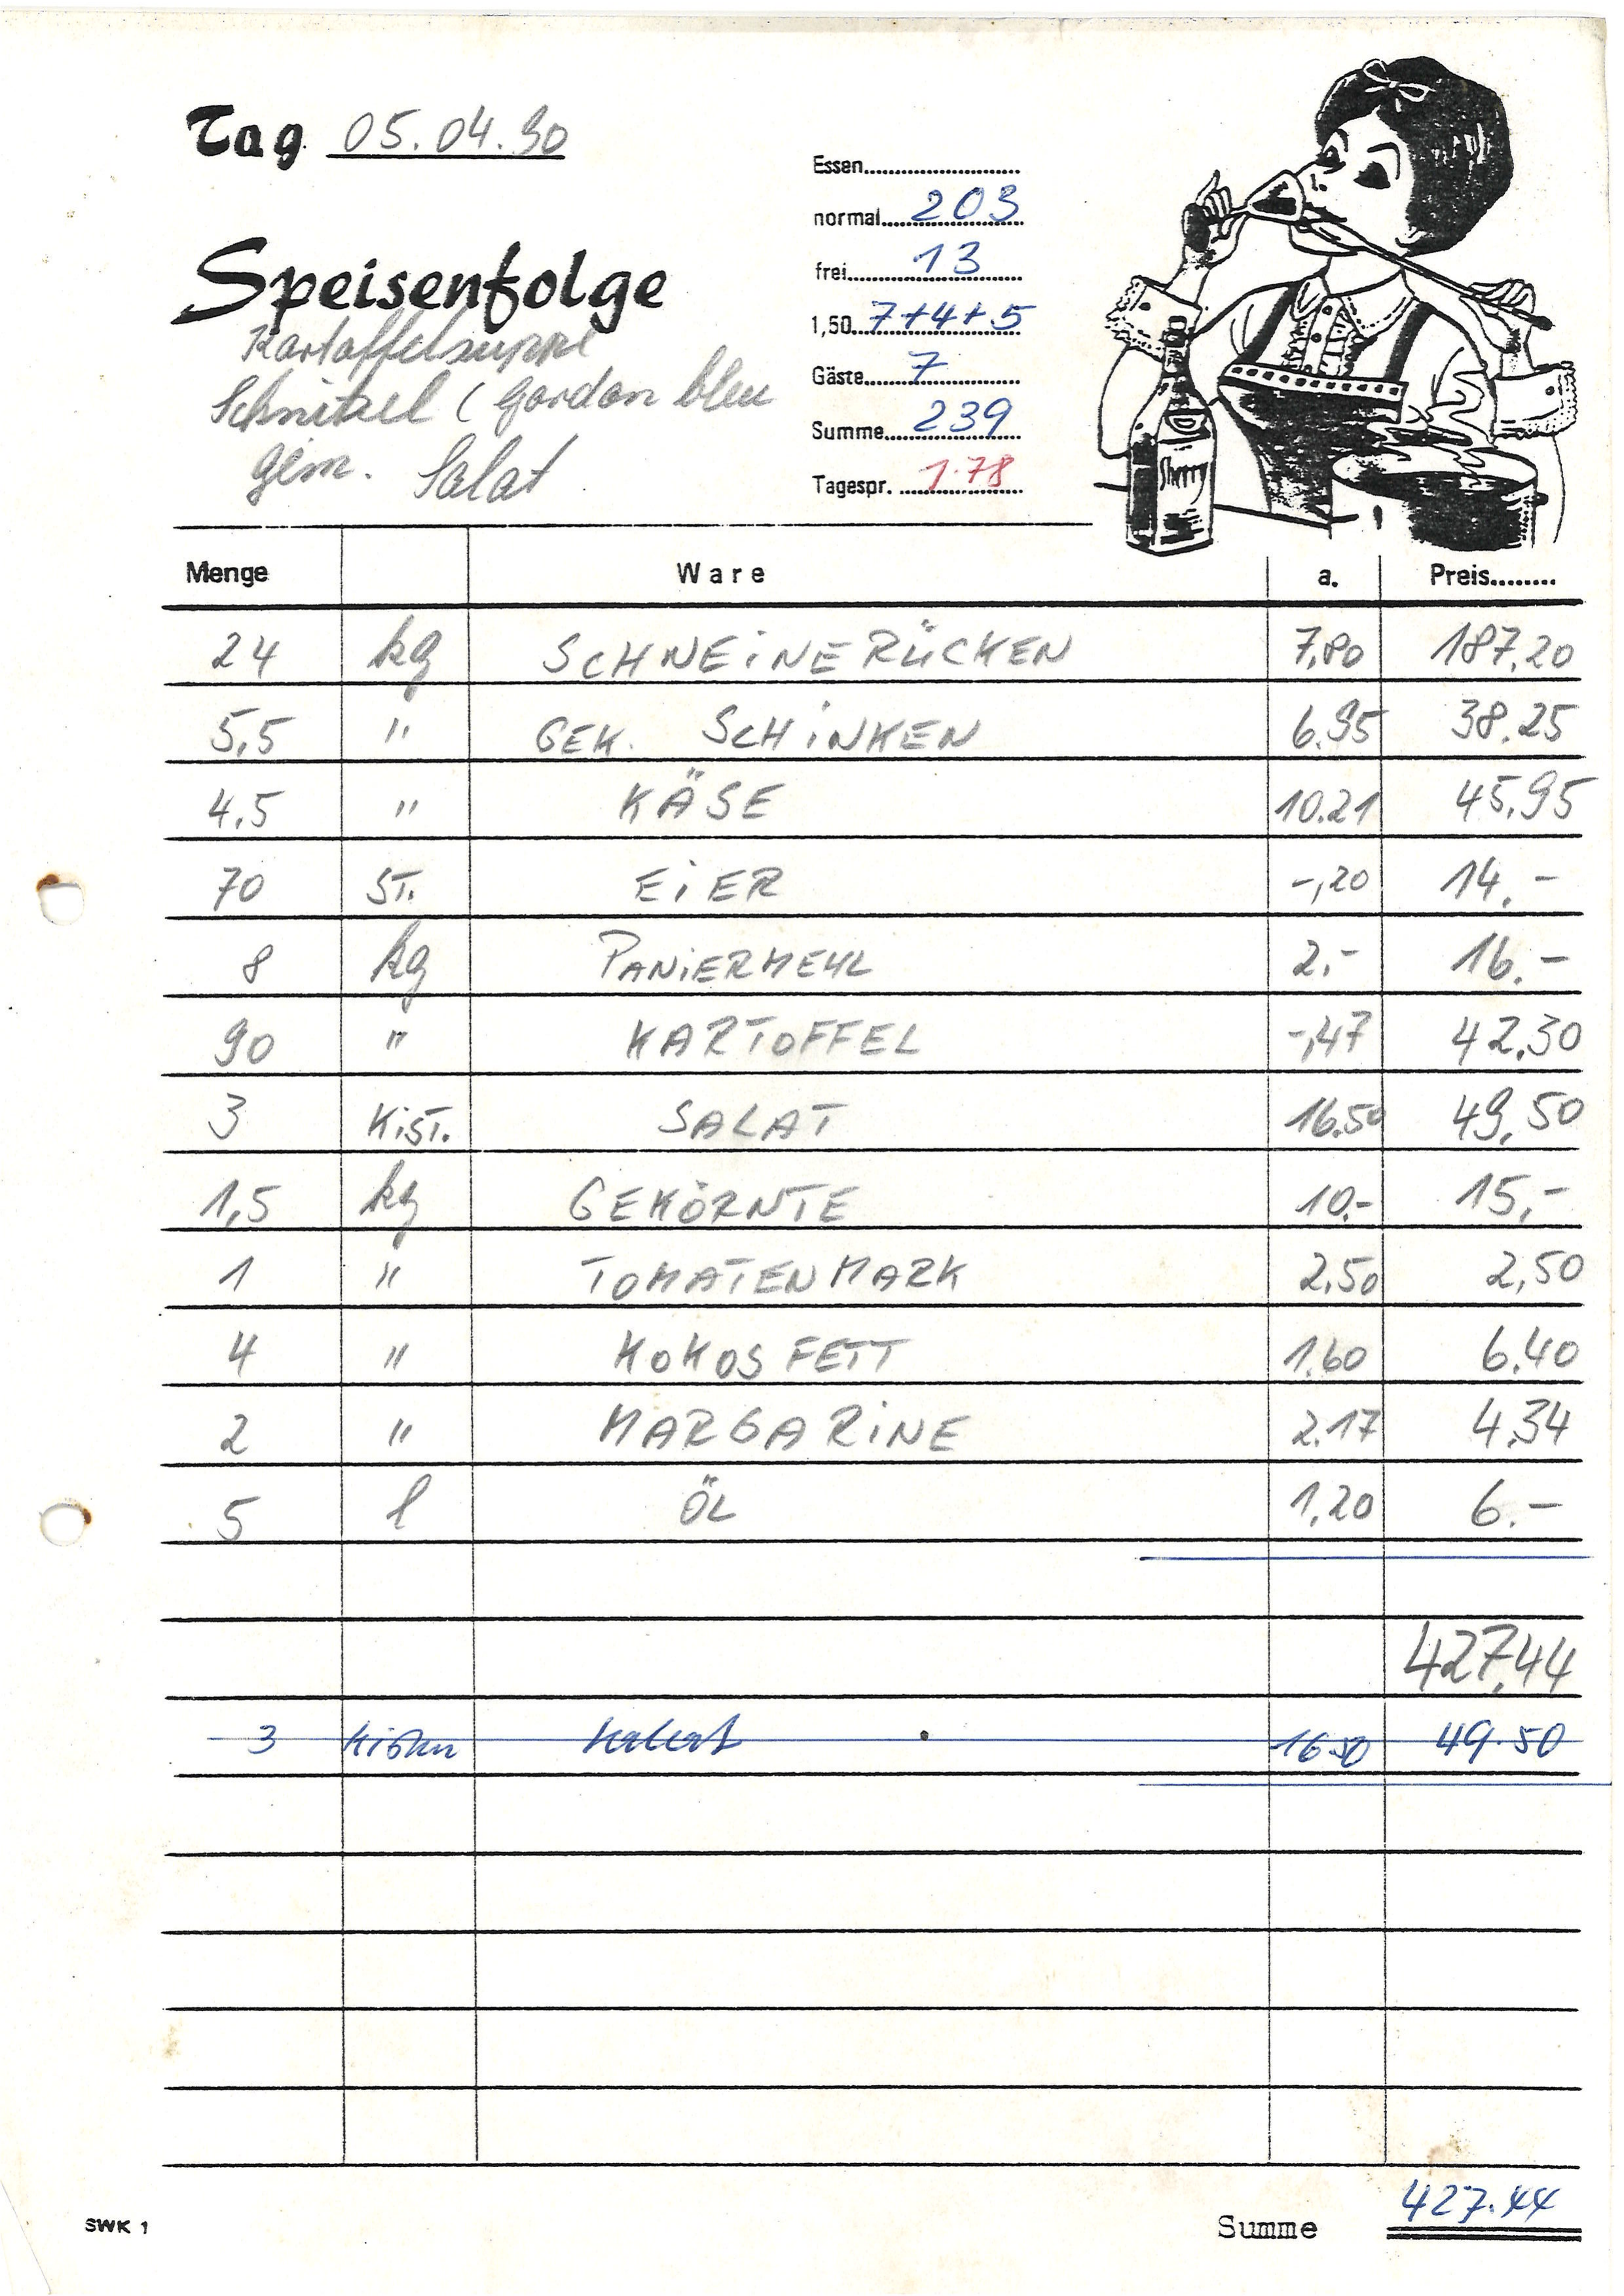 Tag 05.04.90
Speisenfolge
Kartoffelsuppe
Schnitzel ( Gordon bleu
gem. Salat
Essen
normal 203
frei 13
1,50 7+4+5
Gäste 7
Summe 239
Tagespr. 1.78
Sherry
Menge Ware a. Preis
24 kg SCHWEINERÜCKEN 7,80 187,20
5,5 " GEK. SCHiNKEN 6.95 38.25
4,5 " KÄSE 10.21 45.95
70 ST. EiER -,20 14.-
8 kg PANiERMEHL 2,- 16.-
90 " KARTOFFEL -,47 42,30
3 KiST. SALAT 16.50 49,50
1,5 kg GEKÖRNTE 10.- 15,-
1 " TOMATENMARK 2,50 2,50
4 " KOKOSFETT 1.60 6.40
2 " MARGARiNE 2.17 4,34
5 l ÖL 1,20 6.-
427,44
3 Kisten Salat 16.50 49.50
SWK 1
Summe 427.44